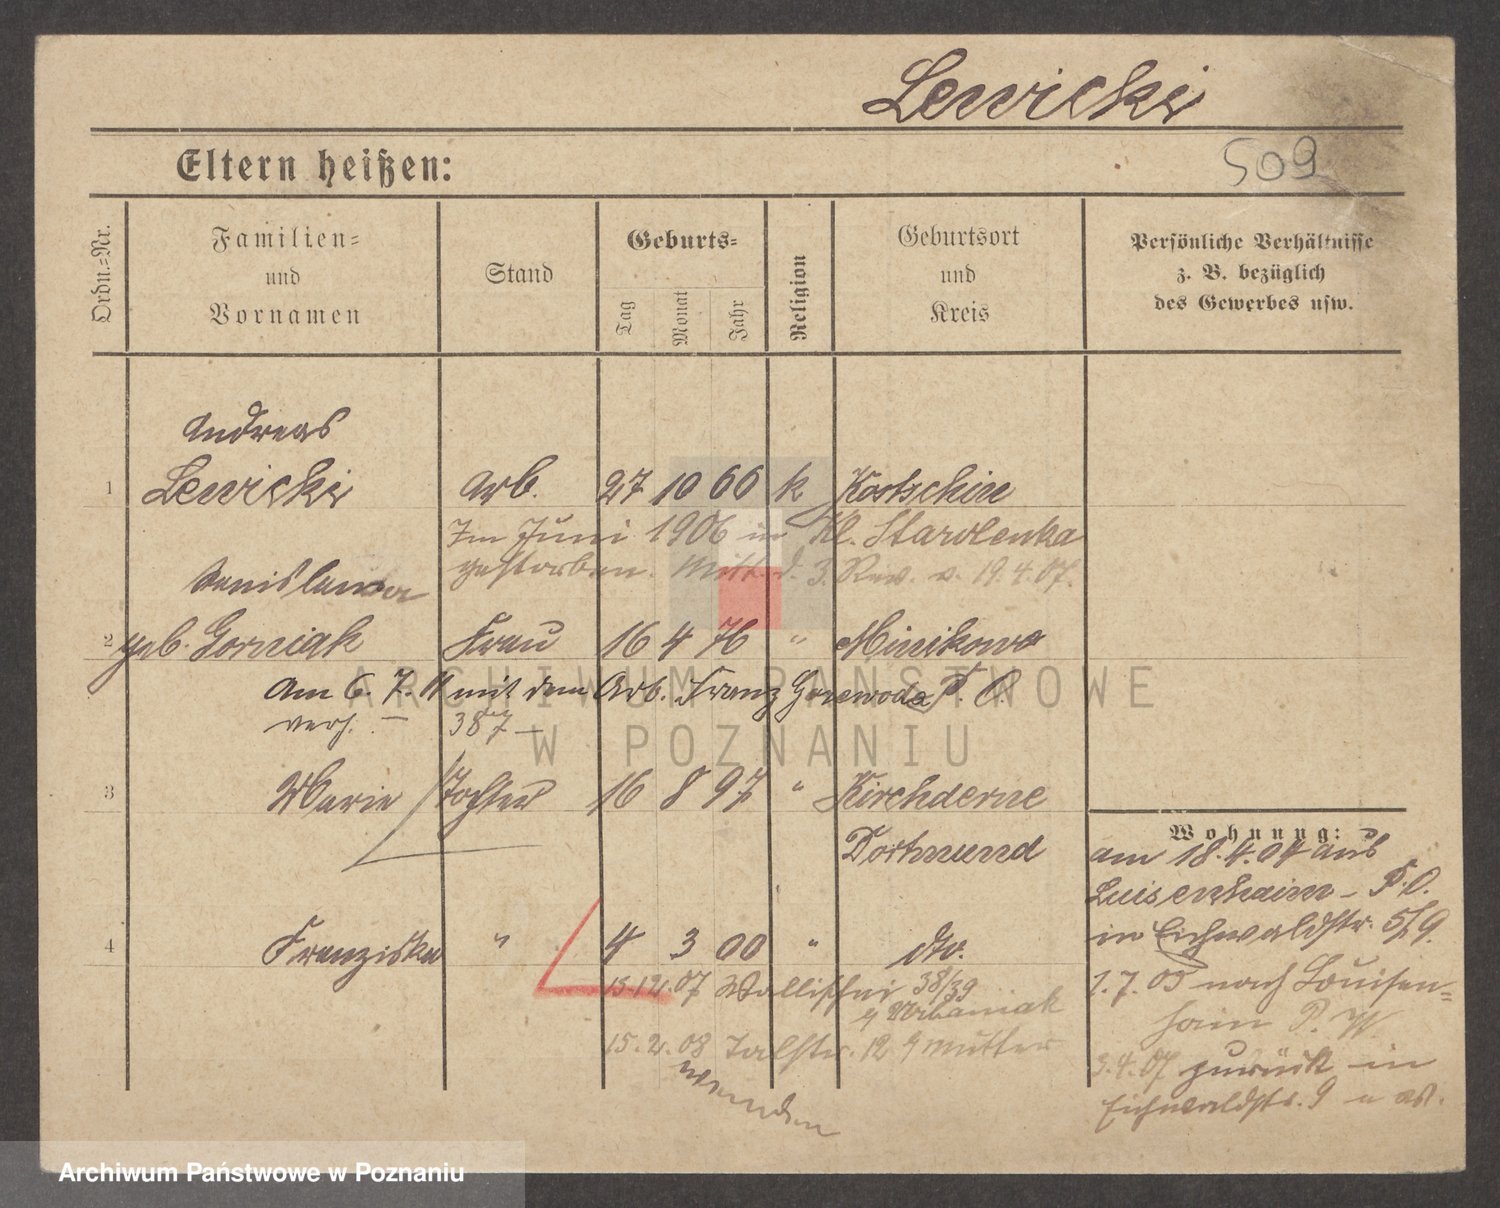 Lewicki
Eltern heißen:
509
Ordn.-Nr.
Familien-
und
Vornamen
Stand
Geburts-
Tag
Monat
Jahr
Religion
Geburtsort
und
Kreis
Persönliche Verhältnisse
z. B. bezüglich
des Gewerbes usw.
Andreas
1 Lewicki Arb. 27 10 66 k Kortschin
Im Juni 1906 in Kl. Starolenka
gestorben. Mitt. d. 3. Rev. v. 19.4.07.
Stanislawa
2 geb. Gorniak Frau 16 4 76 " Minikowo
Am 6. 7. 11 mit dem Arb. Franz P. O.
verh. – 387 –
3 Marie Tochter 16 8 97 " Kirchderne
Dortmund
4 Franziska " 4 3 00 " dto.
15.12.07 Wallischei 38/39
b/ Urbaniak
15.2.08 Talstr. 12 b/ Mutter
wenden
Wohnung:
am 18.4.04 aus
Luisenhain - P.O.
in Eichwaldstr. 5/9.
1.7.05 nach Louisen-
hain P. W
3.4.07 zurück in
Eichwaldstr. 9
ARCHIWUM PAŃSTWOWE
W POZNANIU
Archiwum Państwowe w Poznaniu